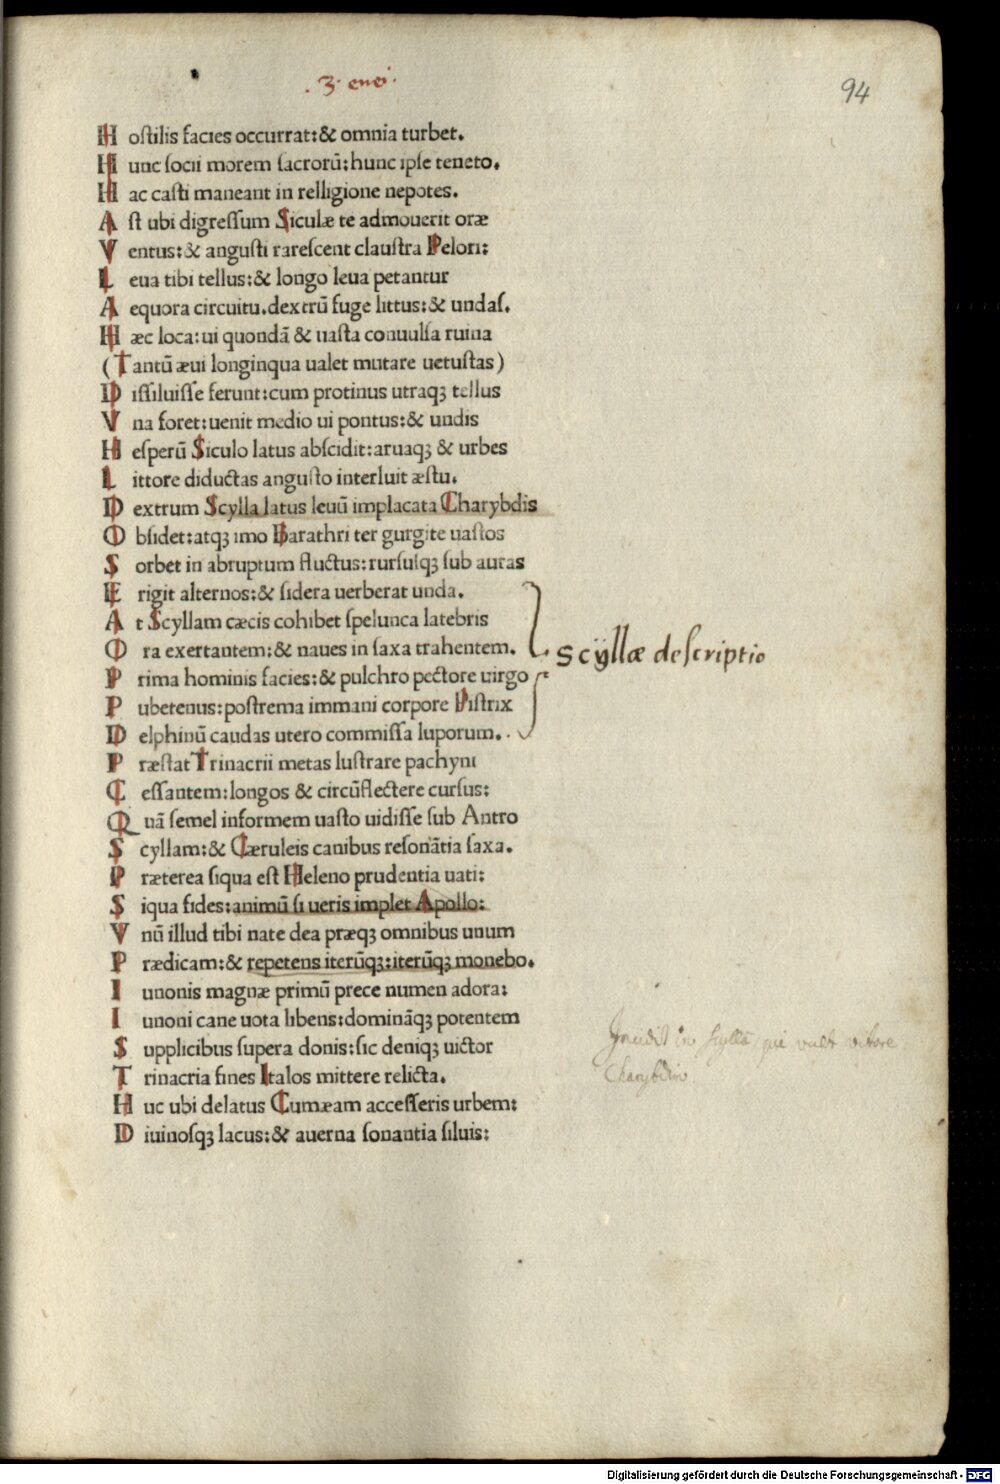 .3. enei.
94
H ostilis facies occurrat:& omnia turbet.
H unc socii morem sacrorū:hunc ipse teneto.
H ac casti maneant in relligione nepotes.
A st ubi digressum Siculæ te admouerit oræ
V entus:& angusti rarescent claustra Pelori:
L eua tibi tellus:& longo leua petantur
A equora circuitu.dextrū fuge littus:& undas.
H æc loca:ui quondā & uasta conuulsa ruina
(Tantū æui longinqua ualet mutare uetustas)
D issiluisse ferunt:cum protinus utraqꝫ tellus
V na foret:uenit medio ui pontus:& undis
H esperū Siculo latus abscidit:aruaqꝫ & urbes
L ittore diductas angusto interluit æstu.
D extrum Scylla latus leuū implacata Charybdis
O bsidet:atqꝫ imo Barathri ter gurgite uastos
S orbet in abruptum fluctus:rursusqꝫ sub auras
E rigit alternos:& sidera uerberat unda.
A t Scyllam cæcis cohibet spelunca latebris
O ra exertantem:& naues in saxa trahentem.
Scyllæ descriptio
P rima hominis facies:& pulchro pectore uirgo
P ubetenus:postrema immani corpore Pistrix
D elphinū caudas utero commissa luporum.
P ræstat Trinacrii metas lustrare pachyni
C essantem:longos & circūflectere cursus:
Q uā semel informem uasto uidisse sub Antro
S cyllam:& Cæruleis canibus resonātia saxa.
P ræterea siqua est Heleno prudentia uati:
S iqua fides:animū si ueris implet Apollo:
V nū illud tibi nate dea præqꝫ omnibus unum
P rædicam:& repetens iterūqꝫ:iterūqꝫ monebo.
I unonis magnæ primū prece numen adora:
I unoni cane uota libens:domināqꝫ potentem
S upplicibus supera donis:sic deniqꝫ uictor
Incidit in Scyllā qui vult vitare
Charybdim
T rinacria fines Italos mittere relicta.
H uc ubi delatus Cumæam accesseris urbem:
D iuinosqꝫ lacus:& auerna sonantia siluis:
Digitalisierung gefördert durch die Deutsche Forschungsgemeinschaft - DFG